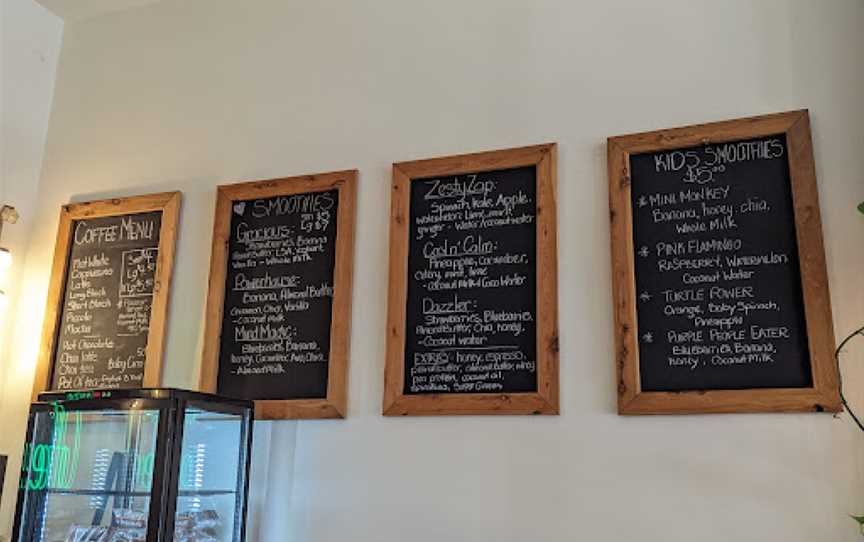 COFFEE MENU
Flat White
Cappuccino
Latte
Long Black
Short Black
Piccolo
Mocha
Hot Chocolate
Chai latte
Chai tea
Pot Of tea
Baby Cino
SMOOTHIES
sm $5
Lg $7
Gracious:
Strawberries, Banana
LSA, Yoghurt
Vanilla - Whole Milk
Powerhouse:
Banana, Almond Butter,
Cinnamon, Chia, Vanilla
- Coconut Milk
Mind Magic:
Blueberries, Banana,
honey, Chia
- Almond Milk
Zesty Zap:
Spinach, Kale, Apple,
watermelon, Lime, mint,
ginger - Water/coconut water
Cool n' Calm:
Pineapple, cucumber,
Celery, mint, lime
- Coco Water
Dazzler:
Strawberries, Blueberries,
Almond Butter, Chia, honey,
- Coconut water
EXTRAS: honey, espresso,
peanut butter, almond butter,
pea protein, coconut oil,
Spirulina, Super Greens
KIDS SMOOTHIES
$5.00
* MINI MONKEY
Banana, honey, chia,
Whole Milk
* PINK FLAMINGO
RASPBERRY, WATERMELON
Coconut Water
* TURTLE POWER
Orange, Baby Spinach,
Pineapple
* PURPLE PEOPLE EATER
Blueberries, Banana,
honey, Coconut Milk